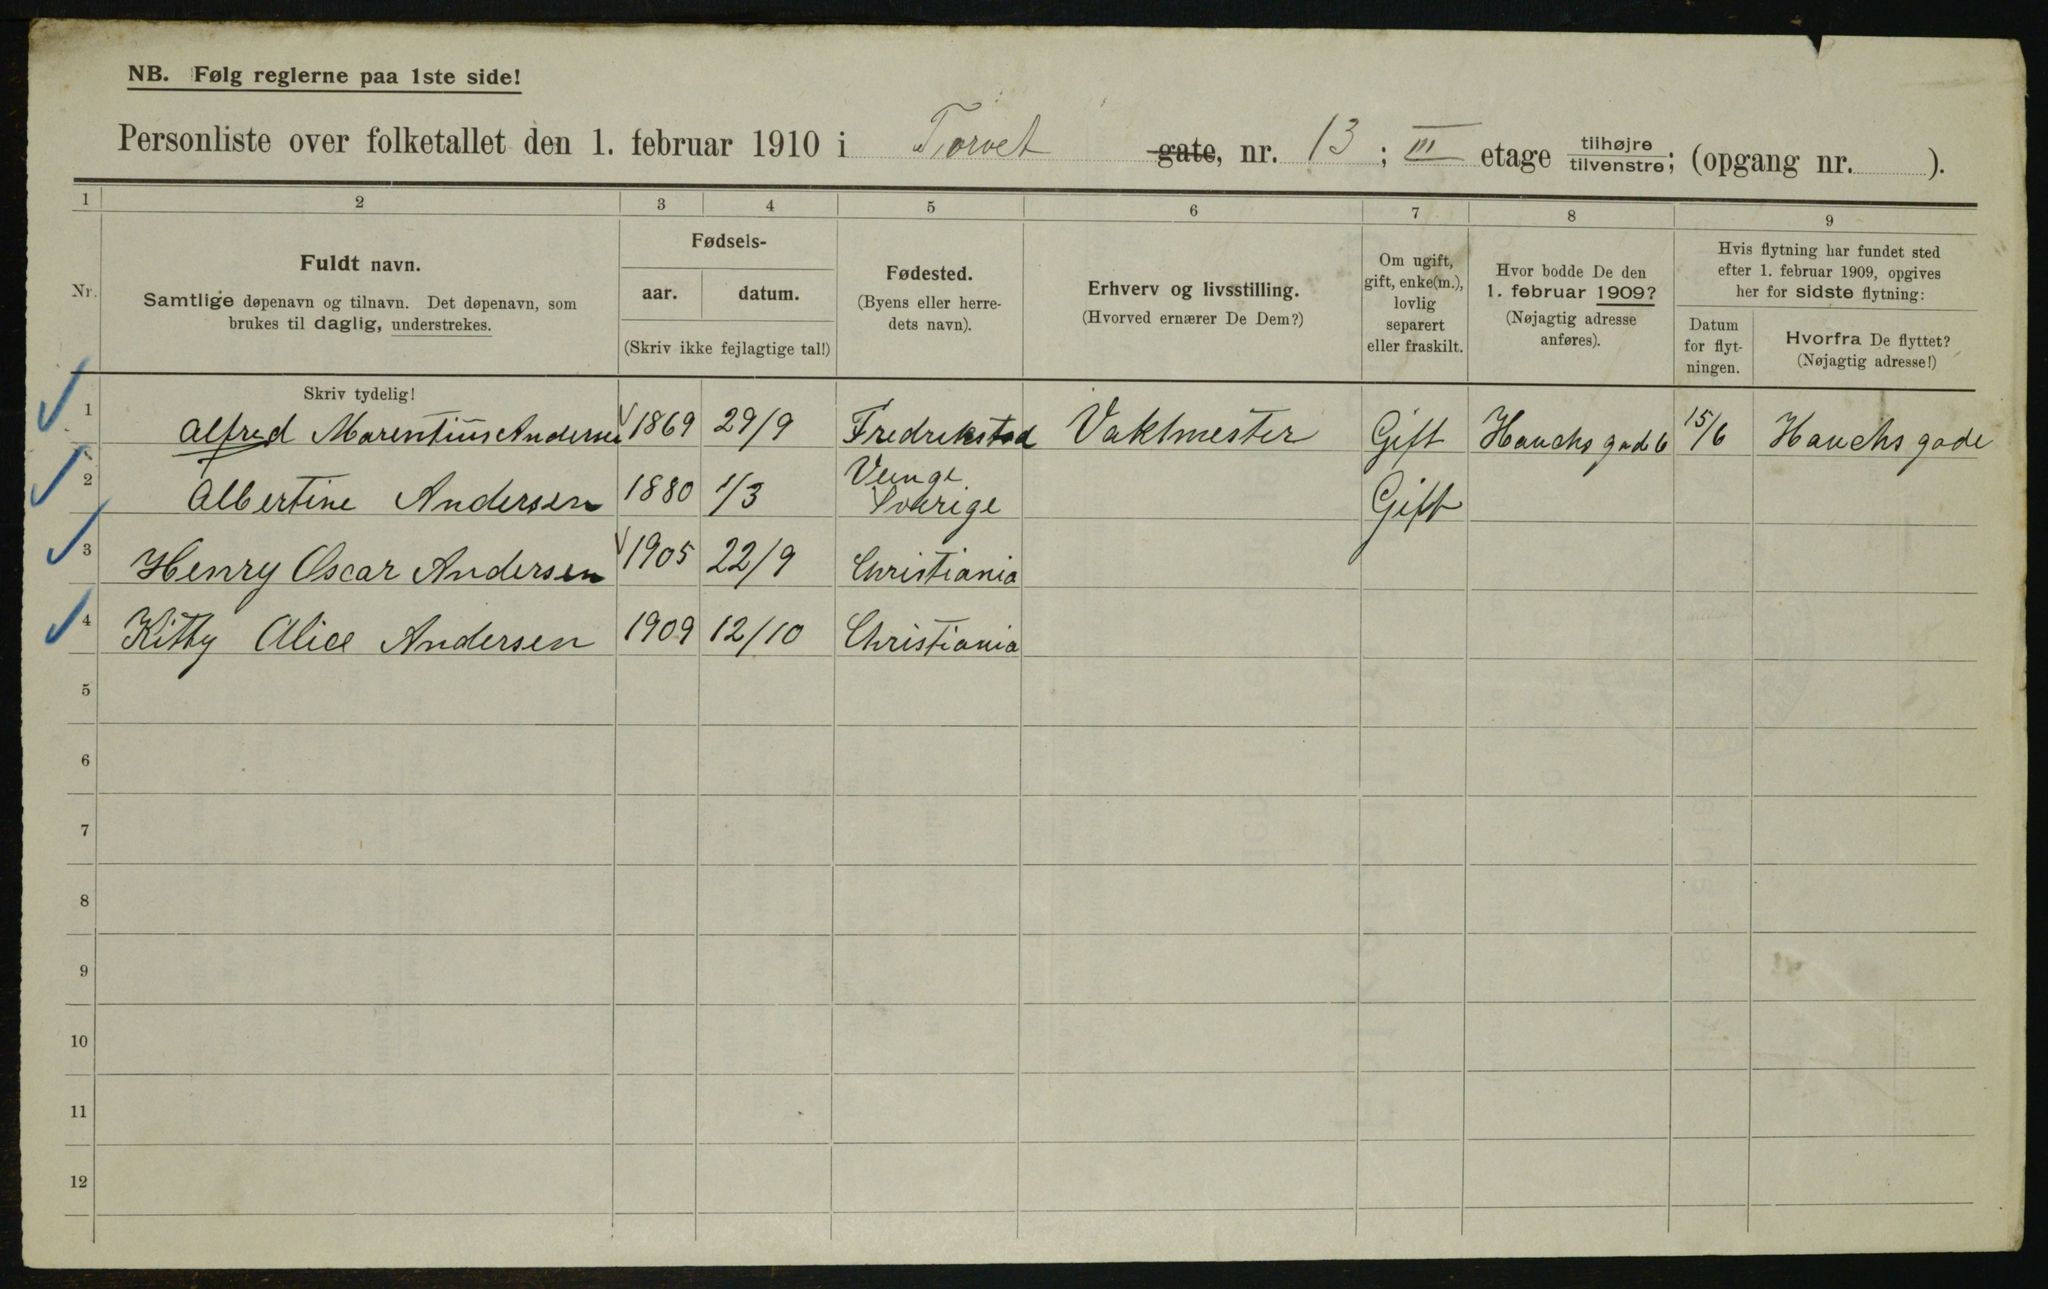 NB. Følg reglerne paa 1ste side!
Personliste over folketallet den 1. februar 1910 i Torvet gate, nr. 13; III etage tilhøjre tilvenstre; (opgang nr. ).
1 2 3 4 5 6 7 8 9
Nr.
Fuldt navn.
Samtlige døpenavn og tilnavn. Det døpenavn, som
brukes til daglig, understrekes.
Fødsels-
aar. datum.
(Skriv ikke fejlagtige tal!)
Fødested.
(Byens eller herre-
dets navn).
Erhverv og livsstilling.
(Hvorved ernærer De Dem?)
Om ugift,
gift, enke(m.),
lovlig
separert
eller fraskilt.
Hvor bodde De den
1. februar 1909?
(Nøjagtig adresse
anføres).
Hvis flytning har fundet sted
efter 1. februar 1909, opgives
her for sidste flytning:
Datum
for flyt-
ningen.
Hvorfra De flyttet?
(Nøjagtig adresse!)
Skriv tydelig!
1 Alfred Marentius Andersen 1869 29/9 Fredrikstad Vaktmester Gift Hauchs gad 6 15/6 Hauchs gade
2 Albertine Andersen 1880 1/3 Veinge Sverige Gift
3 Henry Oscar Andersen 1905 22/9 Christiania
4 Kitty Alice Andersen 1909 12/10 Christiania
5
6
7
8
9
10
11
12